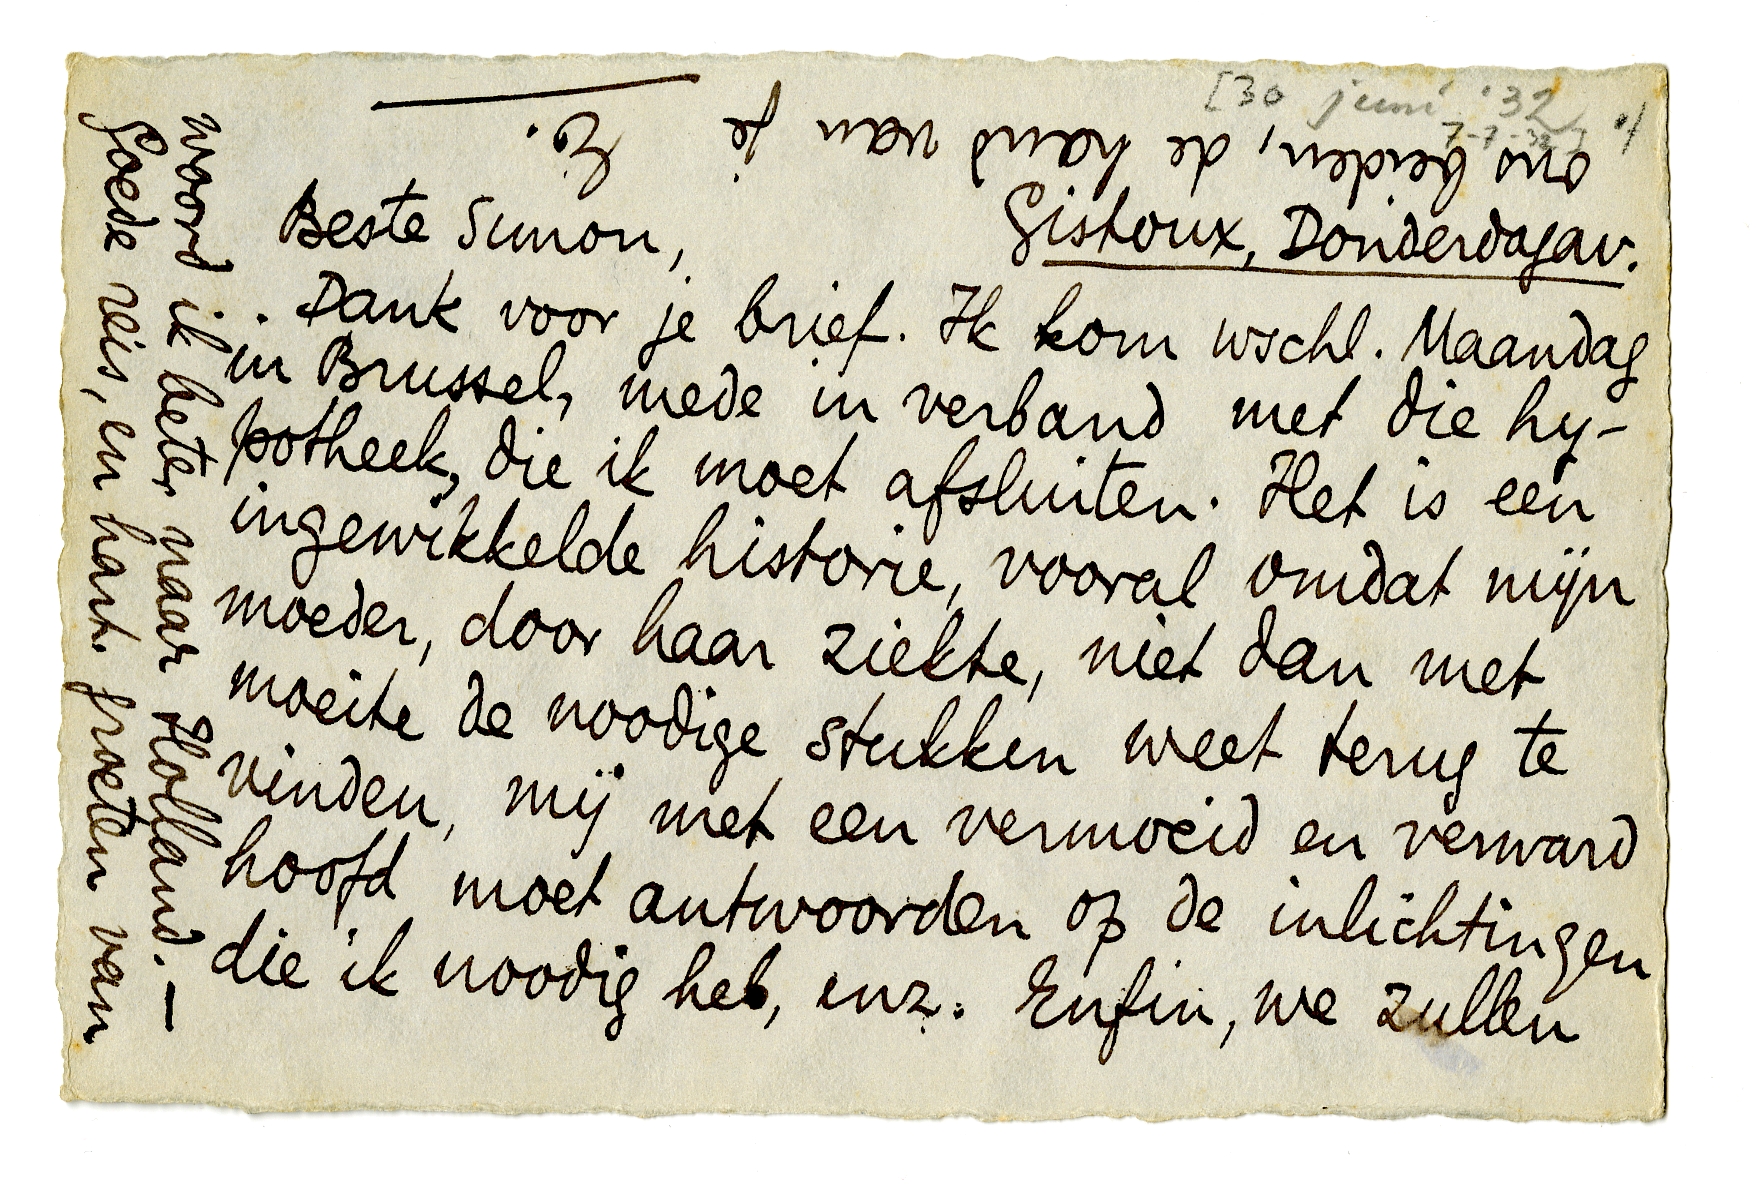 [30 juni '32
7-7-32]
Gistoux, Donderdagav.
Beste Simon,
Dank voor je brief. Ik kom wschl. Maandag
in Brussel, mede in verband met die hy-
potheek, die ik moet afsluiten. Het is een
ingewikkelde historie, vooral omdat mijn
moeder, door haar ziekte, niet dan met
moeite de noodige stukken weet terug te
vinden, mij met een vermoeid en verward
hoofd moet antwoorden op de inlichtingen
die ik noodig heb, enz. Enfin, we zullen
woord ik beter naar Holland. —
Goede reis, en hart. groeten van
ons beiden, de hand van je
E.